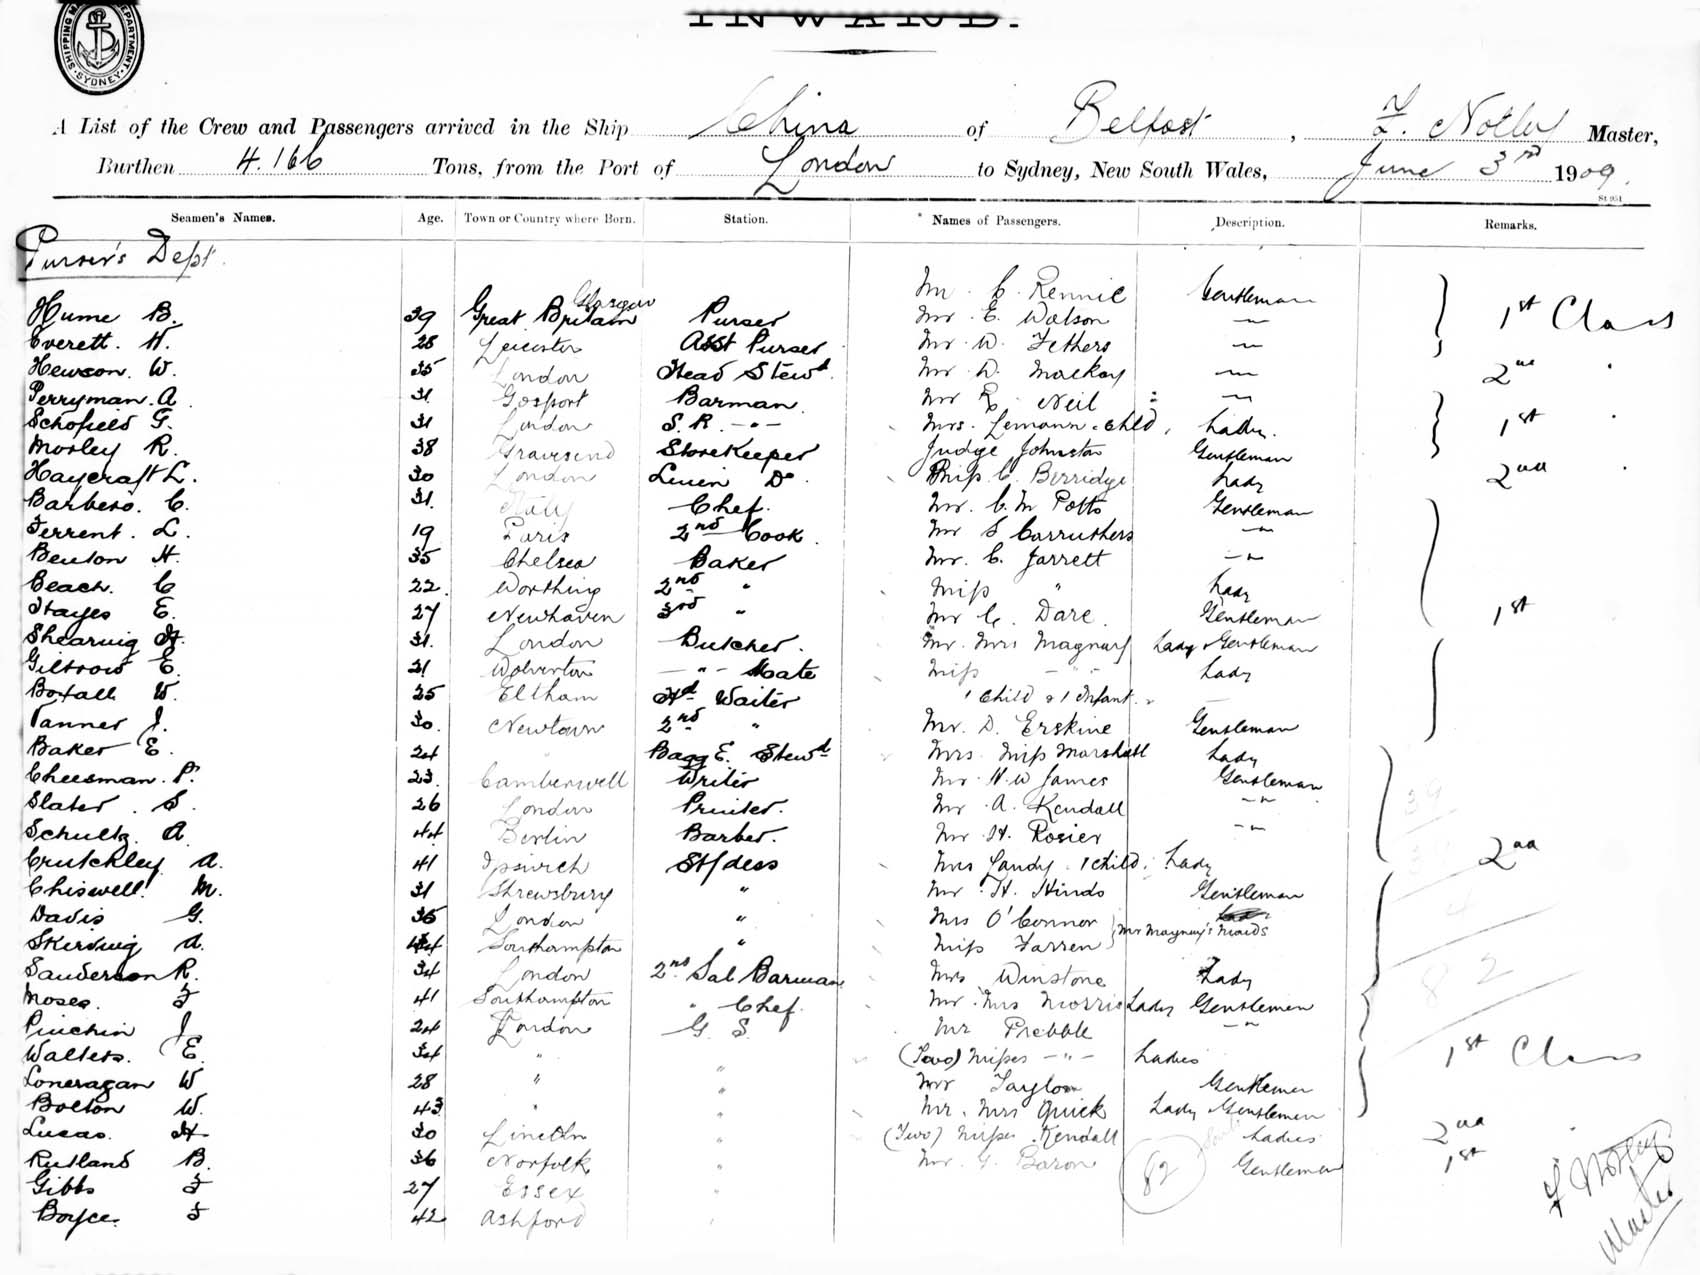 SHIPPING MASTER'S DEPARTMENT SYDNEY
INWARD.
A List of the Crew and Passengers arrived in the Ship China of Belfast, F. Notley Master,
Burthen 4.166 Tons, from the Port of London to Sydney, New South Wales, June 3rd 1909.
St 951
Seamen's Names. Age. Town or Country where Born. Station. * Names of Passengers. Description. Remarks.
Purser's Dept.
Hume B. 39 Great Britain Glasgow Purser
Everett. H. 28 Leicester Asst Purser
Hewson. W. 35 London Head Stewd.
Perryman. A. 31 Gosport Barman
Schofield G. 31 London S. R. -"-
Morley R. 38 Gravesend StoreKeeper
Haycraft L. 30 London Linen Do.
Barbero. C. 31. Italy Chef.
Ferrent. L. 19 Paris 2nd Cook.
Benton H. 35 Chelsea Baker
Beach. C 22. Worthing 2nd "
Hayes E. 27 Newhaven 3rd "
Shearing H. 31. London Butcher.
Giltrow E. 21 Wolverton -"- Mate
Boxall W. 25 Eltham Hd Waiter
Tanner J. 30. Newtown 2nd "
Baker E. 24 " Bagg E. Stewd
Cheesman. P. 23. Camberwell Writer
Slater. S. 26 London Printer.
Schultz. A 44 Berlin Barber.
Crutchley A. 41 Ipswich St/dess
Chiswell. M. 31 Shrewsbury "
Davis G. 35 London "
Skirving A. 44 Southampton "
Sanderson R. 34 London 2nd Sal Barman
Moses. F 41 Southampton " Chef.
Pinchin J 24 London G. S.
Walters. E. 34 " "
Loneragan W 28 " "
Bolton W. 43 " "
Lucas. H 30 Lincoln "
Rutland B. 36 Norfolk "
Gibbs F 27 Essex "
Boyce. F 42 Ashford "
Mr. C. Rennie Gentleman
Mr. E. Watson -"- 1st Class
Mr. W. Fethers -"-
Mr. D. Mackay -"- 2nd
Mr R. Neil -"-
Mrs. Lemann & Child, Lady. 1st
Judge Johnston Gentleman
Miss C. Berridge Lady 2nd
Mr. C. M Potts Gentleman
Mr S Carruthers -"-
Mr. C. Jarrett -"-
Miss " Lady
Mr C. Dare. Gentleman 1st
Mr. Mrs Magnay Lady & Gentleman
Miss -"- Lady
1 Child & 1 Infant. "
Mr. D. Erskine Gentleman
Mrs. Miss Marshall Lady
Mr. H. W James Gentleman
Mr A. Kendall -"-
Mr. H. Rosier -"-
Mrs Landy. 1 child. Lady 2nd
Mr. H. Hinds Gentleman
Mrs O'Connor
Miss Farren } Mr Magnay's Maids
Mrs Winstone Lady
Mr. Mrs Morris Lady Gentlemen
Mr Prebble -"-
(Two) Misses -"- Ladies 1st Class
Mr Taylor Gentlemen
Mr. Mrs Quick Lady Gentlemen
(Two) Misses Kendall Ladies 2nd
Mr. G. Baron Gentleman 1st
82
82
F Notley
Master